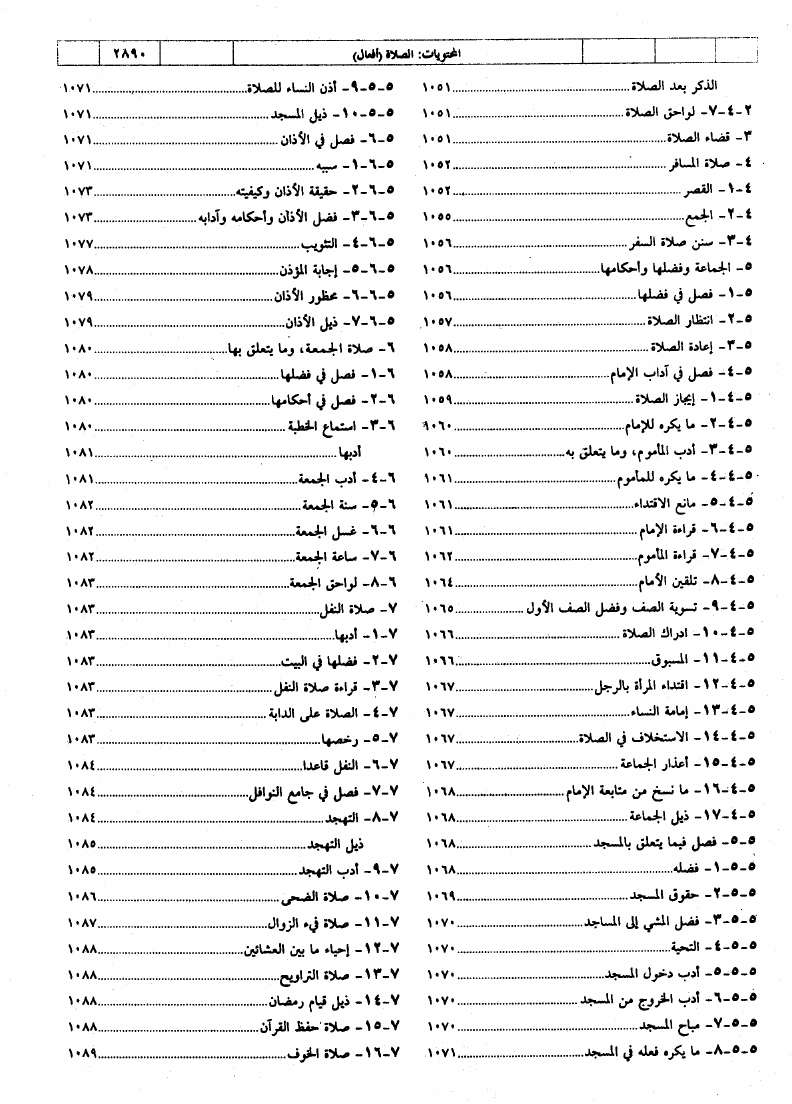 ٢٨٩٠ المحتويات: الصلاة (أفعال)
الذكر بعد الصلاة ١٠٥١
٢-٤-٧- لواحق الصلاة ١٠٥١
٣- قضاء الصلاة ١٠٥١
٤- صلاة المسافر ١٠٥٢
٤-١- القصر ١٠٥٢
٤-٢- الجمع ١٠٥٥
٤-٣- سنن صلاة السفر ١٠٥٦
٥- الجماعة وفضلها وأحكامها ١٠٥٦
٥-١- فصل في فضلها ١٠٥٦
٥-٢- انتظار الصلاة ١٠٥٧
٥-٣- إعادة الصلاة ١٠٥٨
٥-٤- فصل في آداب الإمام ١٠٥٨
٥-٤-١- إيجاز الصلاة ١٠٥٩
٥-٤-٢- ما يكره للإمام ١٠٦٠
٥-٤-٣- أدب المأموم، وما يتعلق به ١٠٦٠
٥-٤-٤- ما يكره للمأموم ١٠٦١
٥-٤-٥- مانع الاقتداء ١٠٦١
٥-٤-٦- قراءة الإمام ١٠٦١
٥-٤-٧- قراءة المأموم ١٠٦٢
٥-٤-٨- تلقين الأمام ١٠٦٤
٥-٤-٩- تسوية الصف وفضل الصف الأول ١٠٦٥
٥-٤-١٠- ادراك الصلاة ١٠٦٦
٥-٤-١١- المسبوق ١٠٦٦
٥-٤-١٢- اقتداء المرأة بالرجل ١٠٦٧
٥-٤-١٣- إمامة النساء ١٠٦٧
٥-٤-١٤- الاستخلاف في الصلاة ١٠٦٧
٥-٤-١٥- أعذار الجماعة ١٠٦٧
٥-٤-١٦- ما نسخ من متابعة الإمام ١٠٦٨
٥-٤-١٧- ذيل الجماعة ١٠٦٨
٥-٥- فصل فيما يتعلق بالمسجد ١٠٦٨
٥-٥-١- فضله ١٠٦٨
٥-٥-٢- حقوق المسجد ١٠٦٩
٥-٥-٣- فضل المشي إلى المساجد ١٠٧٠
٥-٥-٤- التحية ١٠٧٠
٥-٥-٥- أدب دخول المسجد ١٠٧٠
٥-٥-٦- أدب الخروج من المسجد ١٠٧٠
٥-٥-٧- مباح المسجد ١٠٧٠
٥-٥-٨- ما يكره فعله في المسجد ١٠٧١
٥-٥-٩- أذن النساء للصلاة ١٠٧١
٥-٥-١٠- ذيل المسجد ١٠٧١
٥-٦- فصل في الأذان ١٠٧١
٥-٦-١- سببه ١٠٧١
٥-٦-٢- حقيقة الأذان وكيفيته ١٠٧٣
٥-٦-٣- فضل الأذان وأحكامه وآدابه ١٠٧٣
٥-٦-٤- التثويب ١٠٧٧
٥-٦-٥- إجابة المؤذن ١٠٧٨
٥-٦-٦- محظور الأذان ١٠٧٩
٥-٦-٧- ذيل الأذان ١٠٧٩
٦- صلاة الجمعة، وما يتعلق بها ١٠٨٠
٦-١- فصل في فضلها ١٠٨٠
٦-٢- فصل في أحكامها ١٠٨٠
٦-٣- استماع الخطبة ١٠٨٠
أدبها ١٠٨١
٦-٤- أدب الجمعة ١٠٨١
٦-٥- سنة الجمعة ١٠٨٢
٦-٦- غسل الجمعة ١٠٨٢
٦-٧- ساعة الجمعة ١٠٨٢
٦-٨- لواحق الجمعة ١٠٨٣
٧- صلاة النفل ١٠٨٣
٧-١- أدبها ١٠٨٣
٧-٢- فضلها في البيت ١٠٨٣
٧-٣- قراءة صلاة النفل ١٠٨٣
٧-٤- الصلاة على الدابة ١٠٨٣
٧-٥- رخصها ١٠٨٣
٧-٦- النفل قاعدا ١٠٨٤
٧-٧- فصل في جامع النوافل ١٠٨٤
٧-٨- التهجد ١٠٨٤
ذيل التهجد ١٠٨٥
٧-٩- أدب التهجد ١٠٨٥
٧-١٠- صلاة الضحى ١٠٨٦
٧-١١- صلاة فيء الزوال ١٠٨٧
٧-١٢- إحياء ما بين العشائين ١٠٨٨
٧-١٣- صلاة التراويح ١٠٨٨
٧-١٤- ذيل قيام رمضان ١٠٨٨
٧-١٥- صلاة حفظ القرآن ١٠٨٨
٧-١٦- صلاة الخوف ١٠٨٩